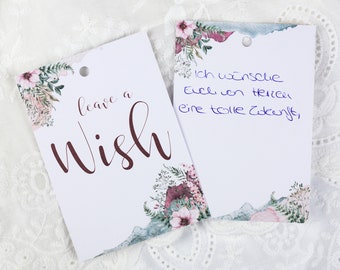 leave a
Wish
Ich wünsche
Euch von Herzen
eine tolle Zukunft,